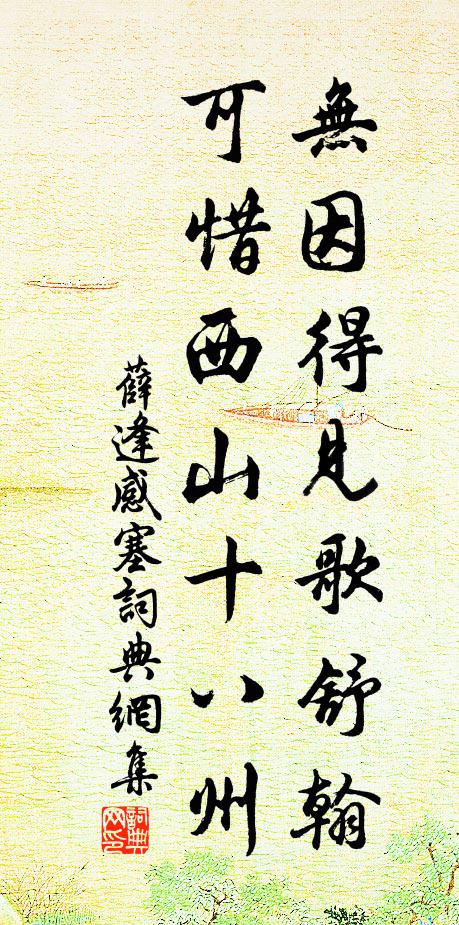 無因得見歌舒翰
可惜西山十八州
薛逢感塞詞典網集
詞典網印